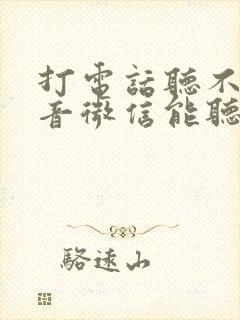 打電話聽不
音微信能聽
駱遠山